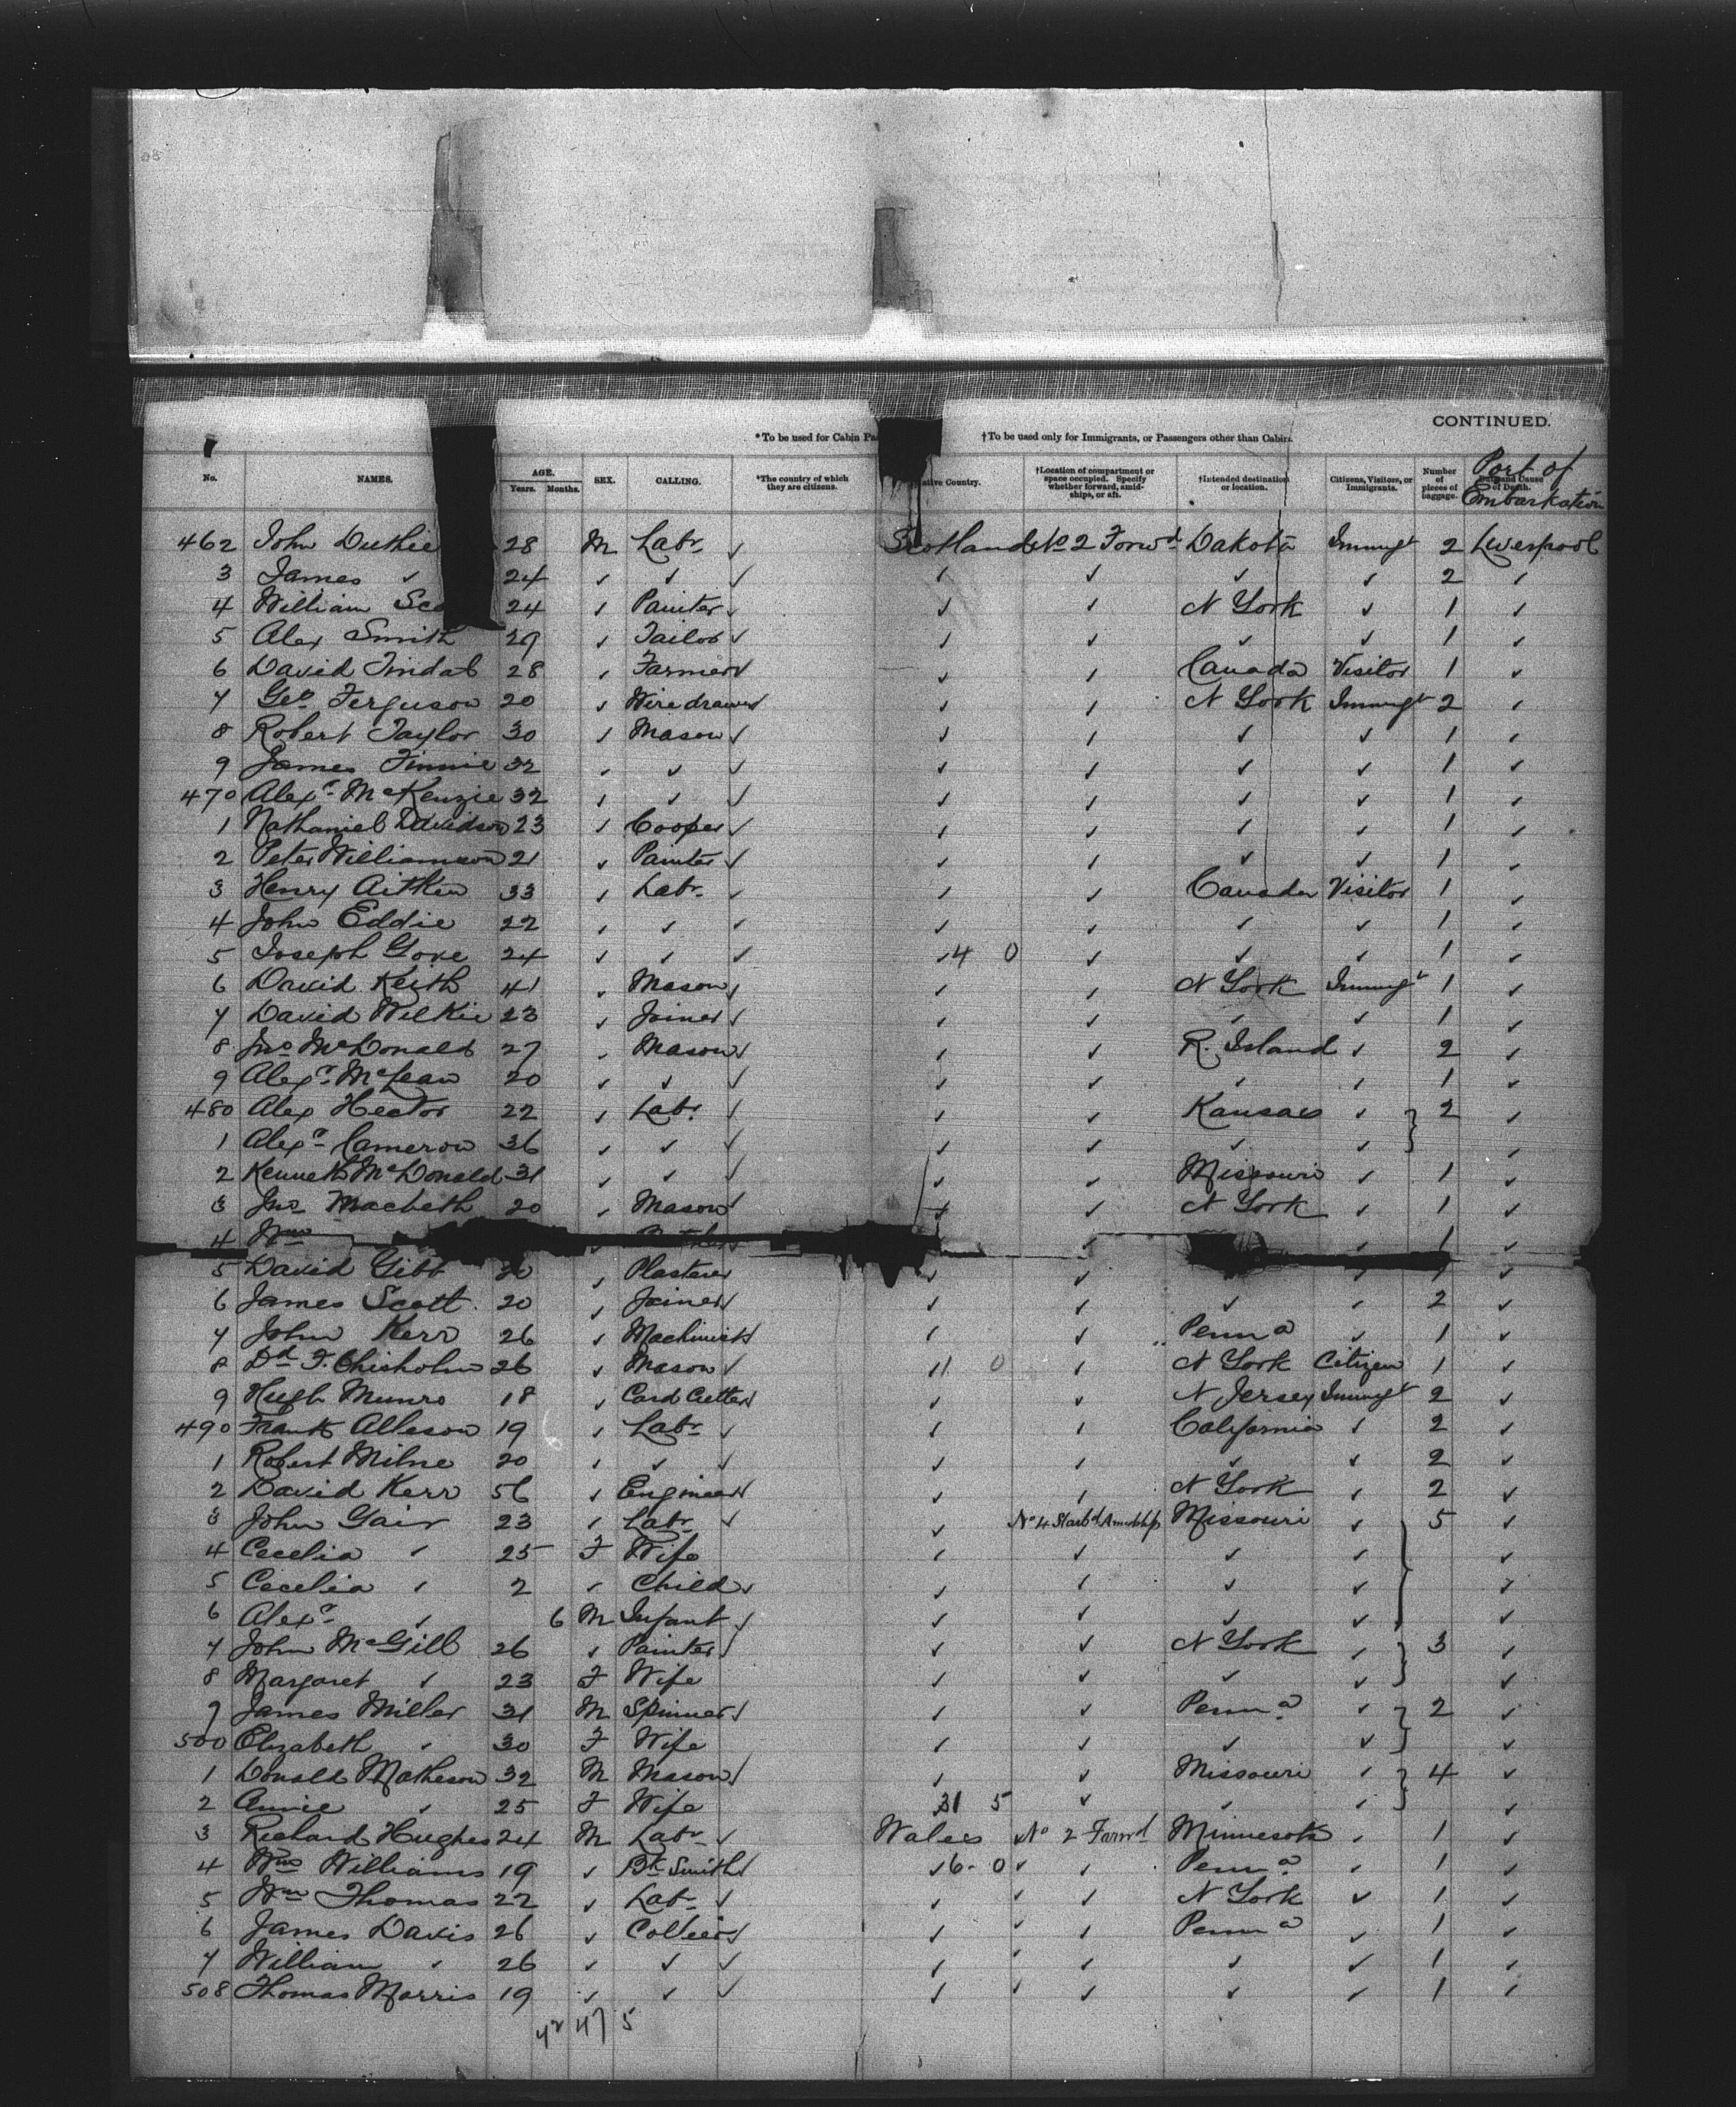 CONTINUED.
*To be used for Cabin Pa †To be used only for Immigrants, or Passengers other than Cabin.
No. NAMES. AGE. Years. Months. SEX. CALLING. *The country of which they are citizens. ative Country. †Location of compartment or space occupied. Specify whether forward, amidships, or aft. †Intended destination or location. Citizens, Visitors, or Immigrants. Number of pieces of baggage. Date and Cause of Death. Port of Embarkation
462 John Duthie 28 M Labr ✓ Scotland No 2 Forwd Dakota Immigt 2 Liverpool
3 James ✓ 24 ✓ ✓ ✓ ✓ ✓ ✓ ✓ 2 ✓
4 William Sco 24 ✓ Painter ✓ ✓ ✓ N York ✓ 1 ✓
5 Alex Smith 29 ✓ Tailor ✓ ✓ ✓ ✓ ✓ 1 ✓
6 David Tindal 28 ✓ Farmer ✓ ✓ ✓ Canada Visitor 1 ✓
7 Geo Ferguson 20 ✓ Wire drawer ✓ ✓ ✓ N York Immigt 2 ✓
8 Robert Taylor 30 ✓ Mason ✓ ✓ ✓ ✓ ✓ 1 ✓
9 James Finnie 32 ✓ ✓ ✓ ✓ ✓ ✓ ✓ 1 ✓
470 Alexr McKenzie 32 ✓ ✓ ✓ ✓ ✓ ✓ ✓ 1 ✓
1 Nathaniel Davidson 23 ✓ Cooper ✓ ✓ ✓ ✓ ✓ 1 ✓
2 Peter Williamson 21 ✓ Painter ✓ ✓ ✓ ✓ ✓ 1 ✓
3 Henry Aitken 33 ✓ Labr ✓ ✓ ✓ Canada Visitor 1 ✓
4 John Eddie 22 ✓ ✓ ✓ ✓ ✓ ✓ ✓ 1 ✓
5 Joseph Gove 24 ✓ ✓ ✓ ✓ 4 0 ✓ ✓ ✓ 1 ✓
6 David Keith 41 ✓ Mason ✓ ✓ ✓ N York Immigt 1 ✓
7 David Wilkie 23 ✓ Joiner ✓ ✓ ✓ ✓ ✓ 1 ✓
8 Jno McDonald 27 ✓ Mason ✓ ✓ ✓ R. Island ✓ 2 ✓
9 Alexr McLean 20 ✓ ✓ ✓ ✓ ✓ ✓ ✓ 1 ✓
480 Alex Hector 22 ✓ Labr ✓ ✓ ✓ Kansas ✓ } 2 ✓
1 Alexr Cameron 36 ✓ ✓ ✓ ✓ ✓ ✓ ✓ ✓
2 Kenneth McDonald 31 ✓ ✓ ✓ ✓ ✓ Missouri ✓ 1 ✓
3 Jno Macbeth 20 ✓ Mason ✓ ✓ ✓ N York ✓ 1 ✓
4 Wm ✓ ✓ ✓ 1 ✓
5 David Gibb ✓ Plasterer ✓ ✓ ✓ 1 ✓
6 James Scott 20 ✓ Joiner ✓ ✓ ✓ ✓ ✓ 2 ✓
7 John Kerr 26 ✓ Machinist ✓ ✓ ✓ Penna ✓ 1 ✓
8 Dd F. Chisholm 26 ✓ Mason ✓ 11 0 ✓ N York Citizen 1 ✓
9 Hugh Munro 18 ✓ Card Cutter ✓ ✓ ✓ N Jersey Immigt 2 ✓
490 Frank Alleson 19 ✓ Labr ✓ ✓ ✓ California ✓ 2 ✓
1 Robert Milne 20 ✓ ✓ ✓ ✓ ✓ ✓ ✓ 2 ✓
2 David Kerr 56 ✓ Engineer ✓ ✓ ✓ N York ✓ 2 ✓
3 John Gair 23 ✓ Labr ✓ ✓ No 4 Starbd Amidship Missouri ✓ } 5 ✓
4 Cecelia ✓ 25 F Wife ✓ ✓ ✓ ✓ ✓
5 Cecelia ✓ 2 ✓ Child ✓ ✓ ✓ ✓ ✓ ✓
6 Alexr ✓ 6 M Infant ✓ ✓ ✓ ✓ ✓ ✓
7 John McGill 26 ✓ Painter ✓ ✓ ✓ N York ✓ } 3 ✓
8 Margaret ✓ 23 F Wife ✓ ✓ ✓ ✓ ✓
9 James Miller 31 M Spinner ✓ ✓ ✓ Penna ✓ } 2 ✓
500 Elizabeth ✓ 30 F Wife ✓ ✓ ✓ ✓ ✓
1 Donald Matheson 32 M Mason ✓ ✓ ✓ Missouri ✓ } 4 ✓
2 Annie ✓ 25 F Wife 31 5 ✓ ✓ ✓ ✓
3 Richard Hughes 24 M Labr ✓ Wales No 2 Forwd Minnesota ✓ 1 ✓
4 Wm Williams 19 ✓ Bk Smith ✓ ✓ 6-0 ✓ ✓ Penna ✓ 1 ✓
5 Wm Thomas 22 ✓ Labr ✓ ✓ ✓ ✓ N York ✓ 1 ✓
6 James Davis 26 ✓ Collier ✓ ✓ ✓ ✓ Penna ✓ 1 ✓
7 William ✓ 26 ✓ ✓ ✓ ✓ ✓ ✓ ✓ ✓ 1 ✓
508 Thomas Morris 19 ✓ ✓ ✓ ✓ ✓ ✓ ✓ ✓ 1 ✓
42 47 5